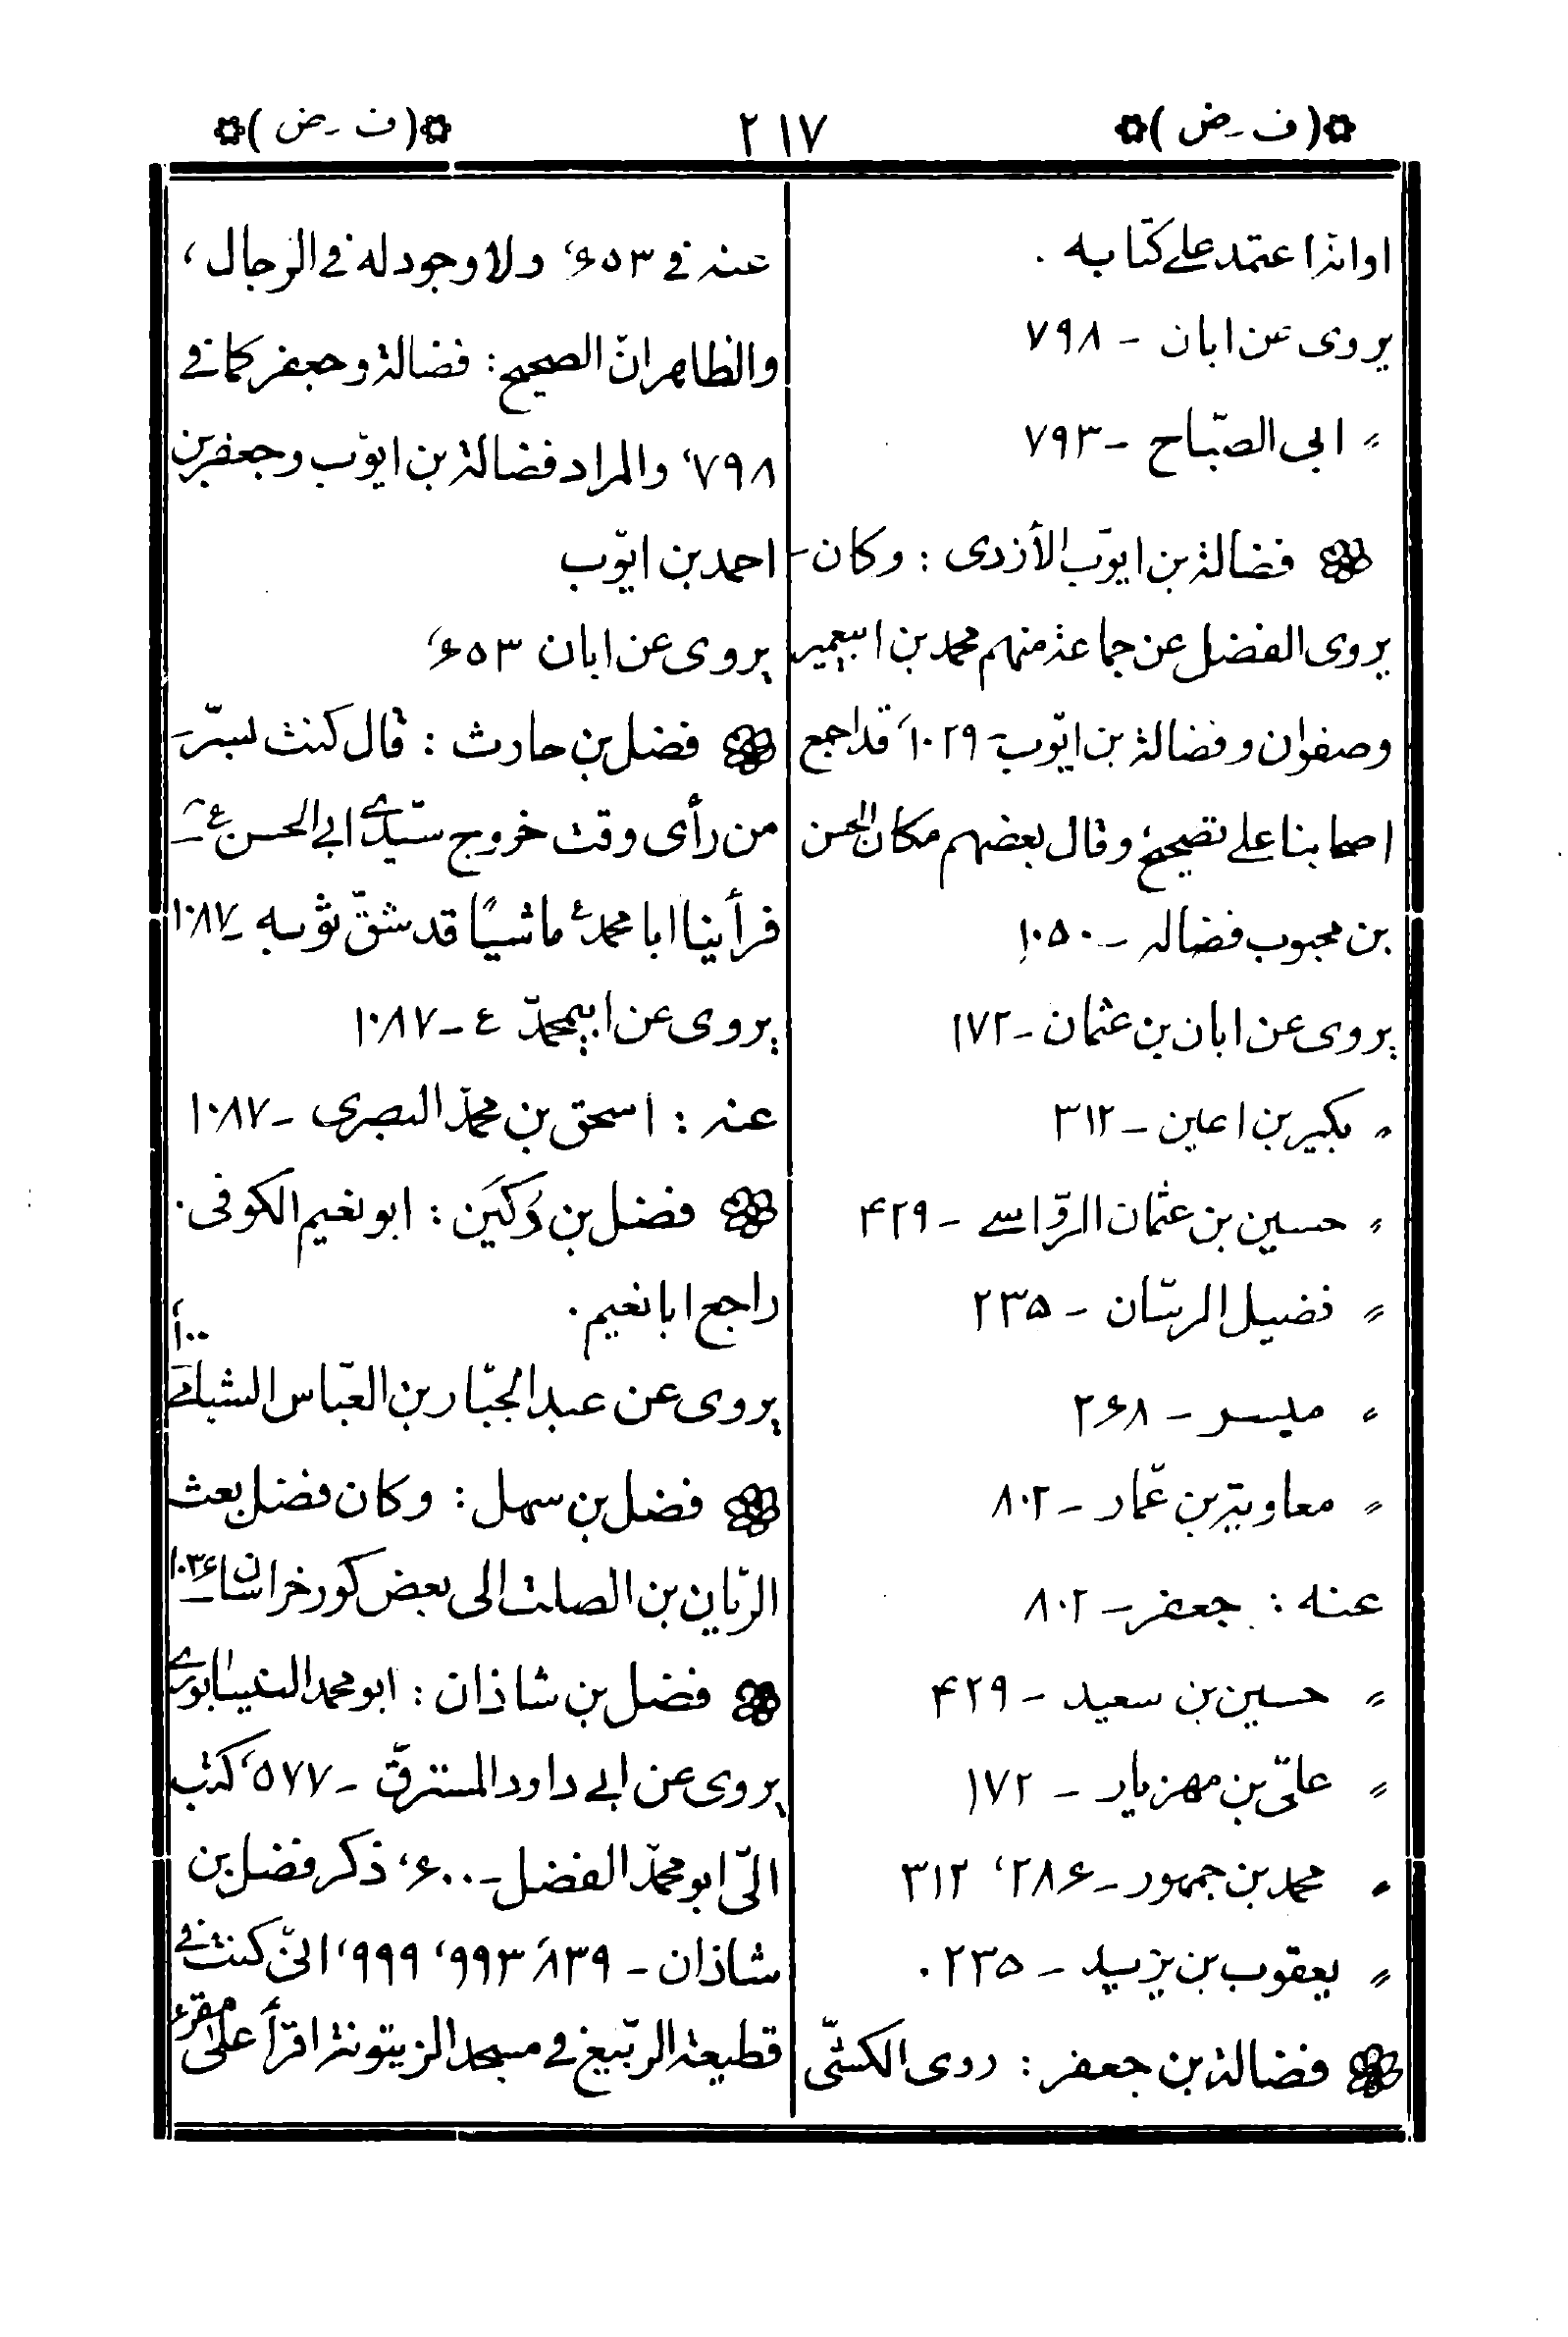 (ف ـ ض)
٢١٧
(ف ـ ض)
او اذا اعتمد على كتابه .
يروى عن ابان ـ ٧٩٨
〃 ابى الصبّاح ـ ٧٩٣
فضالة بن ايّوب الأزدى : وكان ـ
يروى الفضل عن جماعة منهم محمد بن ابيعمير
وصفوان وفضالة بن ايّوب ـ ١٠٢٩، قد اجمع
اصحابنا على تصحيح، وقال بعضهم مكان الحسن
بن محبوب فضاله ـ ١٠٥٠
يروى عن ابان بن عثمان ـ ١٧٢
〃 بكير بن اعين ـ ٣١٢
〃 حسين بن عثمان الروّاسى ـ ۴٢٩
〃 فضيل الرسّان ـ ٢٣۵
〃 ميسر ـ ٢۶٨
〃 معاوية بن عمّار ـ ٨٠٢
عنه : جعفر ـ ٨٠٢
〃 حسين بن سعيد ـ ۴٢٩
〃 علىّ بن مهزيار ـ ١٧٢
〃 محمد بن جمهور ـ ٢٨۶، ٣١٢
〃 يعقوب بن يزيد ـ ٢٣۵ .
فضالة بن جعفر : روى الكشّى
عنه فى ۶۵٣، ولا وجود له فى الرجال ،
والظاهر انّ الصحيح : فضالة وجعفر كما فى
٧٩٨، والمراد فضالة بن ايّوب وجعفر بن
احمد بن ايّوب
يروى عن ابان ۶۵٣،
فضل بن حارث : قال كنت بسرّ ـ
من رأى وقت خروج سيّدى ابى الحسن ع ـ
فرأينا ابا محمد ع ماشيًا قد شقّ ثوبه ـ ١٠٨٧
يروى عن ابيمحمّد ع ـ ١٠٨٧
عنه : اسحق بن محمّد البصرى ـ ١٠٨٧
فضل بن دُكَين : ابو نعيم الكوفى .
راجع ابا نعيم .
يروى عن عبد الجبّار بن العبّاس الشبامى ١٠٠،
فضل بن سهل : وكان فضل بعث
الريّان بن الصلت الى بعض كور خراسان ـ ١٠٣۶
فضل بن شاذان : ابو محمد النيسابورى
يروى عن ابى داود المسترقّ ـ ۵٧٧، كتب
الىّ ابو محمّد الفضل ـ ۶٠٠، ذكر فضل بن
شاذان ـ ٨٣٩، ٩٩٣، ٩٩٩، انّى كنت فى
قطيعة الربيع فى مسجد الزيتونة اقرأ على مقرء